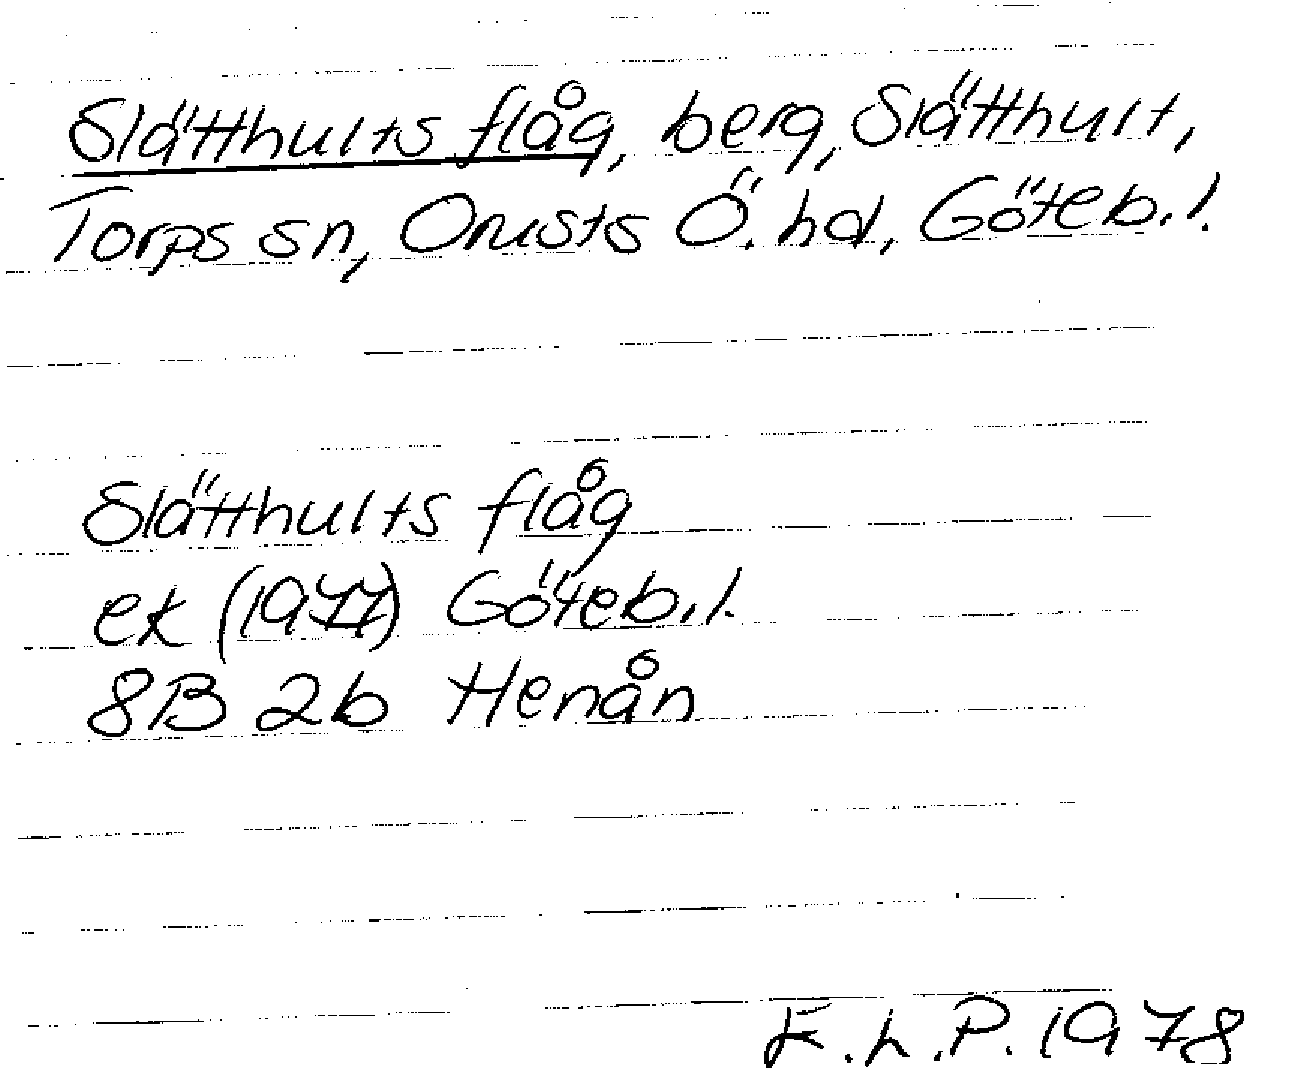 Slätthults flåg, berg, Slätthult,
Torps sn, Orusts Ö. hd, Göteb. l.
Slätthults flåg
ek (1977) Göteb. l.
8B 2b Henån
E. L. P. 1978